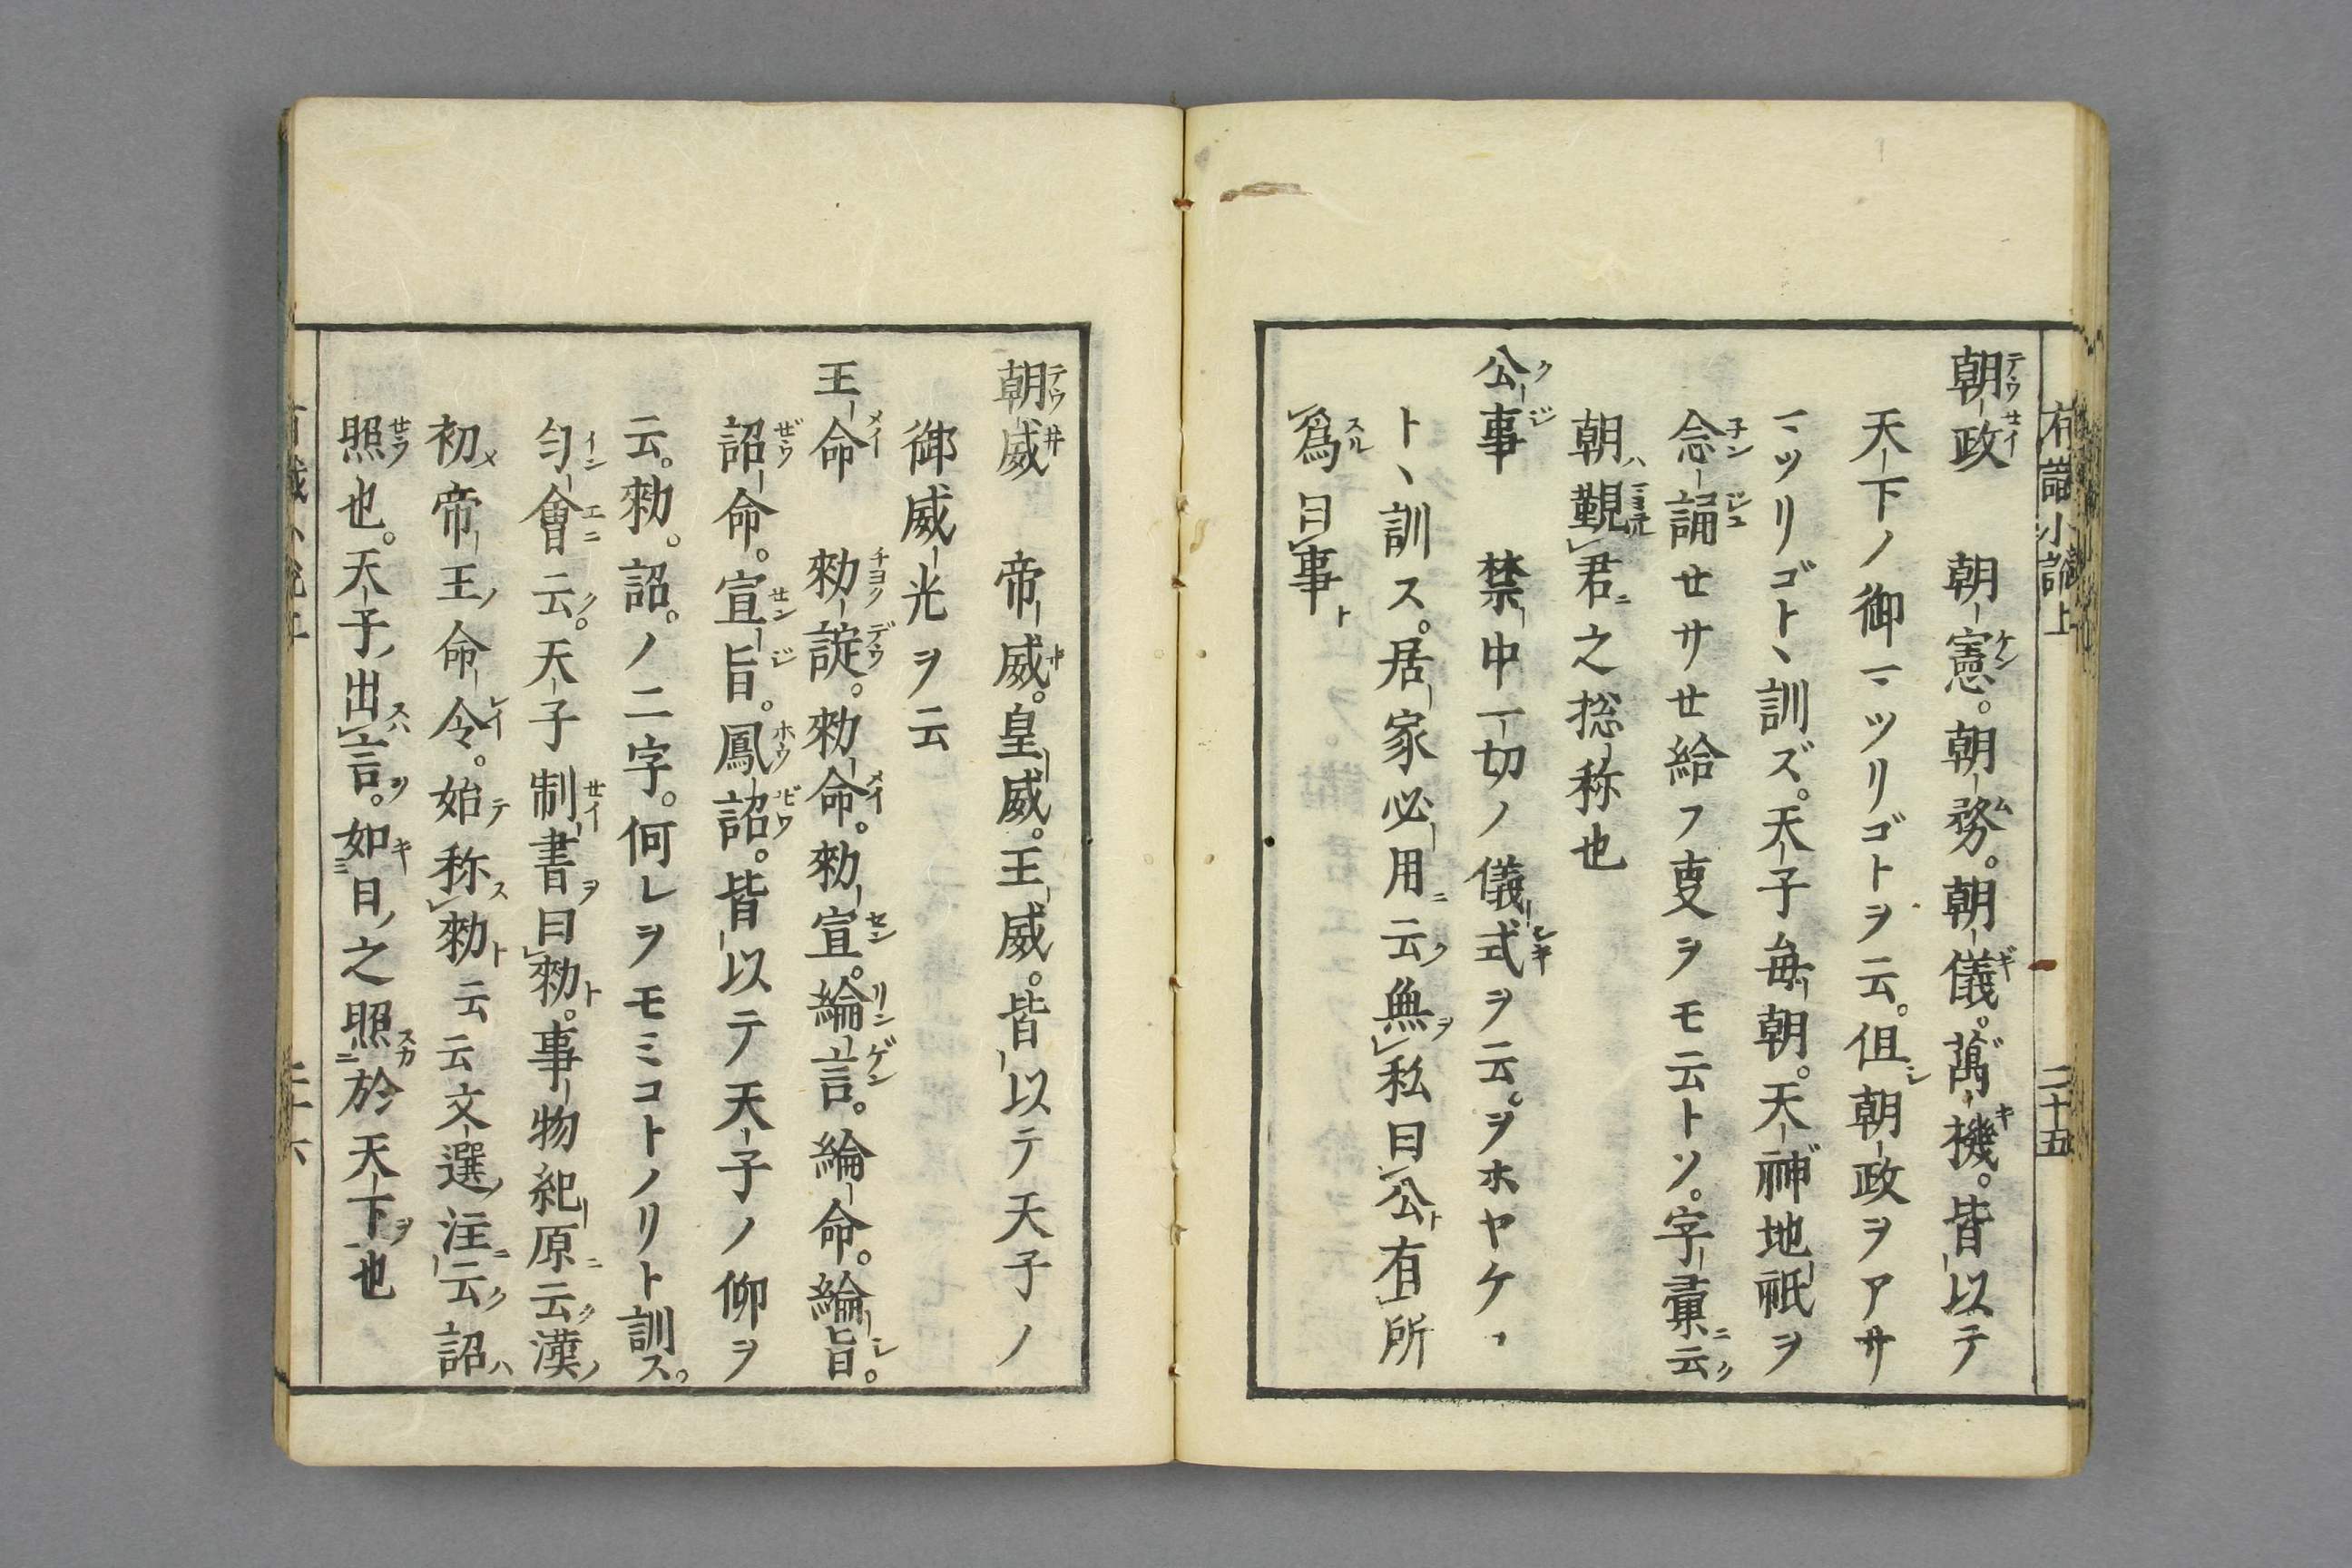 朝政　朝憲。朝務。朝儀。萬機。皆以テ
天下ノ御マツリゴトヲ云。但朝政ヲアサ
マツリゴトヽ訓ズ。天子毎朝。天神地祇ヲ
念誦セサセ給フ叓ヲモ云トソ。字彙云
朝覲君之捴称也
公事　禁中一切ノ儀式ヲ云。ヲホヤケヿ
トヽ訓ス。居家必用云無私曰公有所
爲曰事
二十五
朝威　帝威。皇威。王威。皆以テ天子ノ
御威光ヲ云
王命　勑諚。勑命。勑宣。綸言。綸命。綸旨。
詔命。宣旨。鳳詔。皆以テ天子ノ仰ヲ
云。勑。詔。ノ二字。何レヲモミコトノリト訓ス。
匀會云。天子制書曰勑。事物紀原云漢
初帝王命令。始称勑云云文選注云詔
照也。天子出言。如日之照於天下也